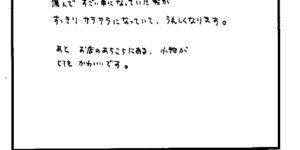 傷んで すごい事になっていた髪が
すっきり サラサラになっていて、うれしくなります。
あと お店のあちこちにある、小物が
とても かわいいです。